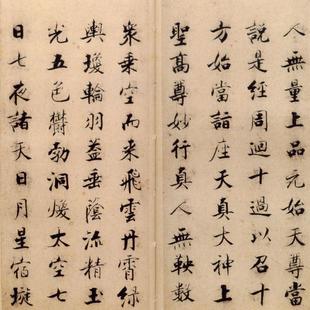 人無量上品元始天尊當
說是經周迴十過以召十
方始當詣座天真大神上
聖高尊妙行真人無鞅數
衆乗空而来飛雲丹霄綠
輿瓊輪羽蓋垂陰流精玉
光五色欝勃洞煥太空七
日七夜諸天日月星宿璇